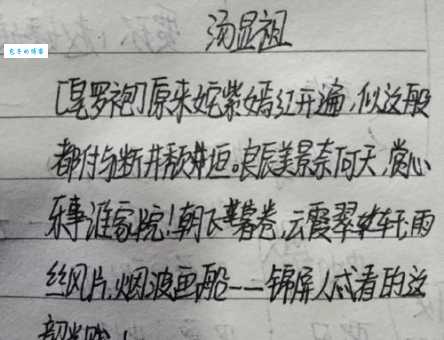 包子的博客
汤显祖
[皂罗袍]原来姹紫嫣红开遍,似这般
都付与断井颓垣。良辰美景奈何天,赏心
乐事谁家院!朝飞暮卷,云霞翠轩;雨
丝风片,烟波画船——锦屏人忒看的这
韶光贱!